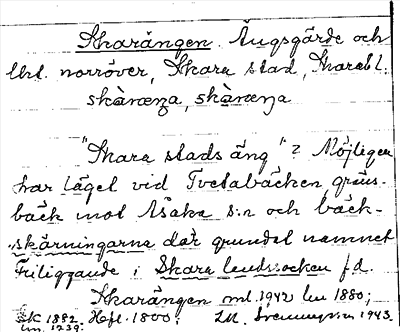 Skarängen. Ängsgärde och
norröver, Skara stad, Skarabl.
skàræŋa, skàræŋa
"Skara stads äng"? Möjligen
har läget vid Tvetabäcken, gräns-
bäck mot Åsaka s:n och bäck-
skärningarna där grundat namnet
Friliggande i Skara landsocken f.d.
Skarängen ml. 1942 ln 1880;
SK 1882, Hfl. 1800; 1943.
lm. 1739.